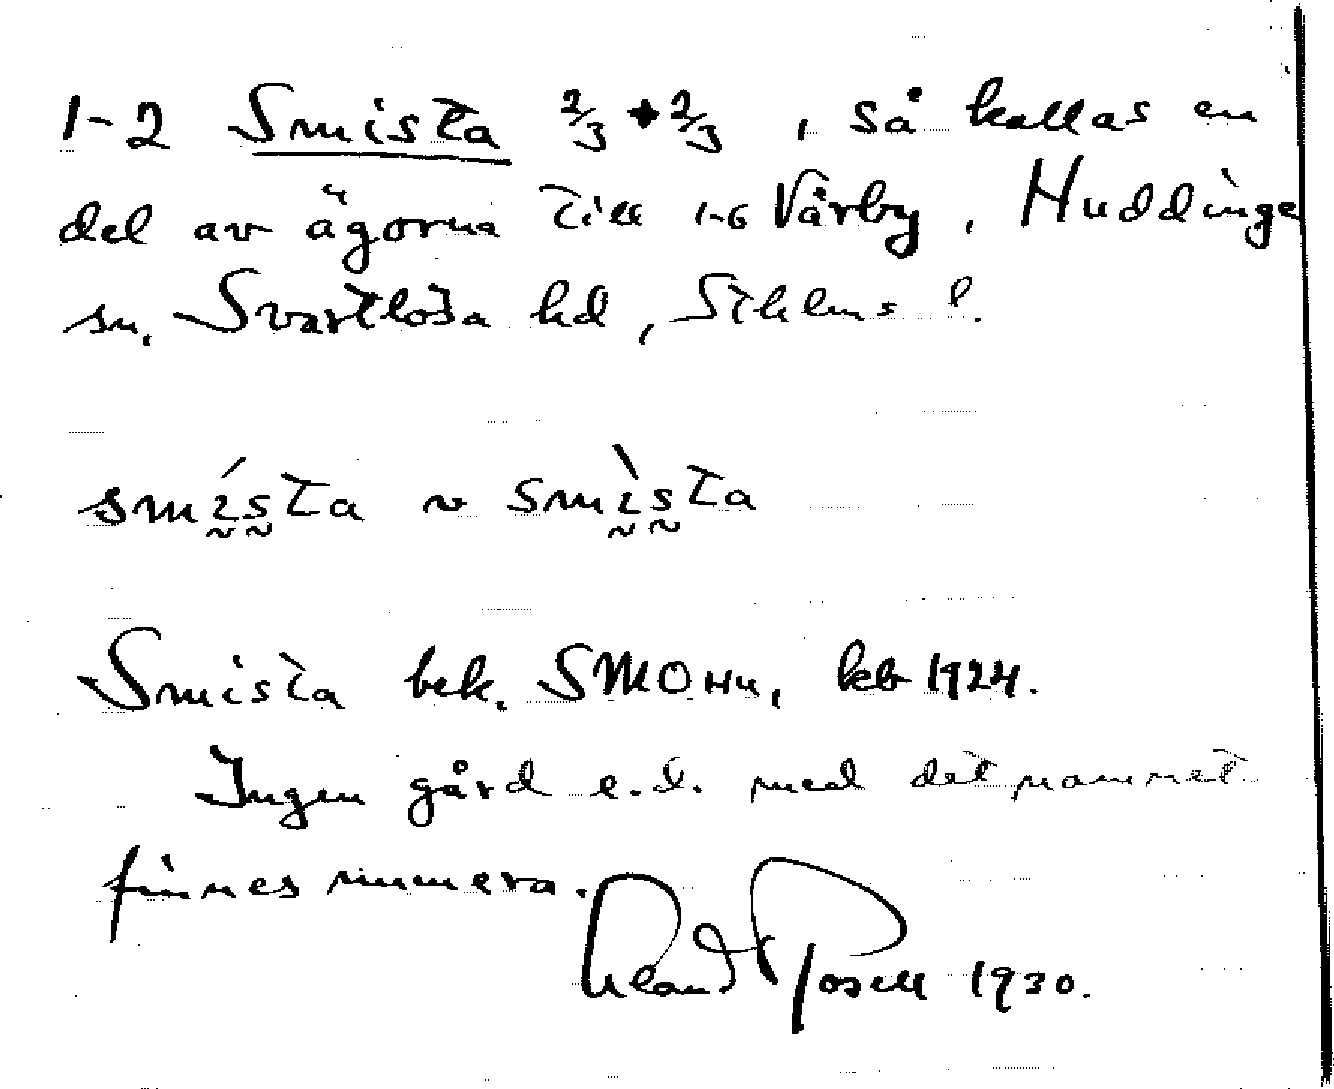 1-2 Smista 2/3 + 2/3, så kallas en
del av ägorna till 1-6 Vårby, Huddinge
sn, Svartlösa hd, Sthlms l.
smísta ~ smìsta
Smista bek. SMO HU, kb 1924.
Ingen gård e.d. med det namnet
finnes numera.
Rosell 1930.